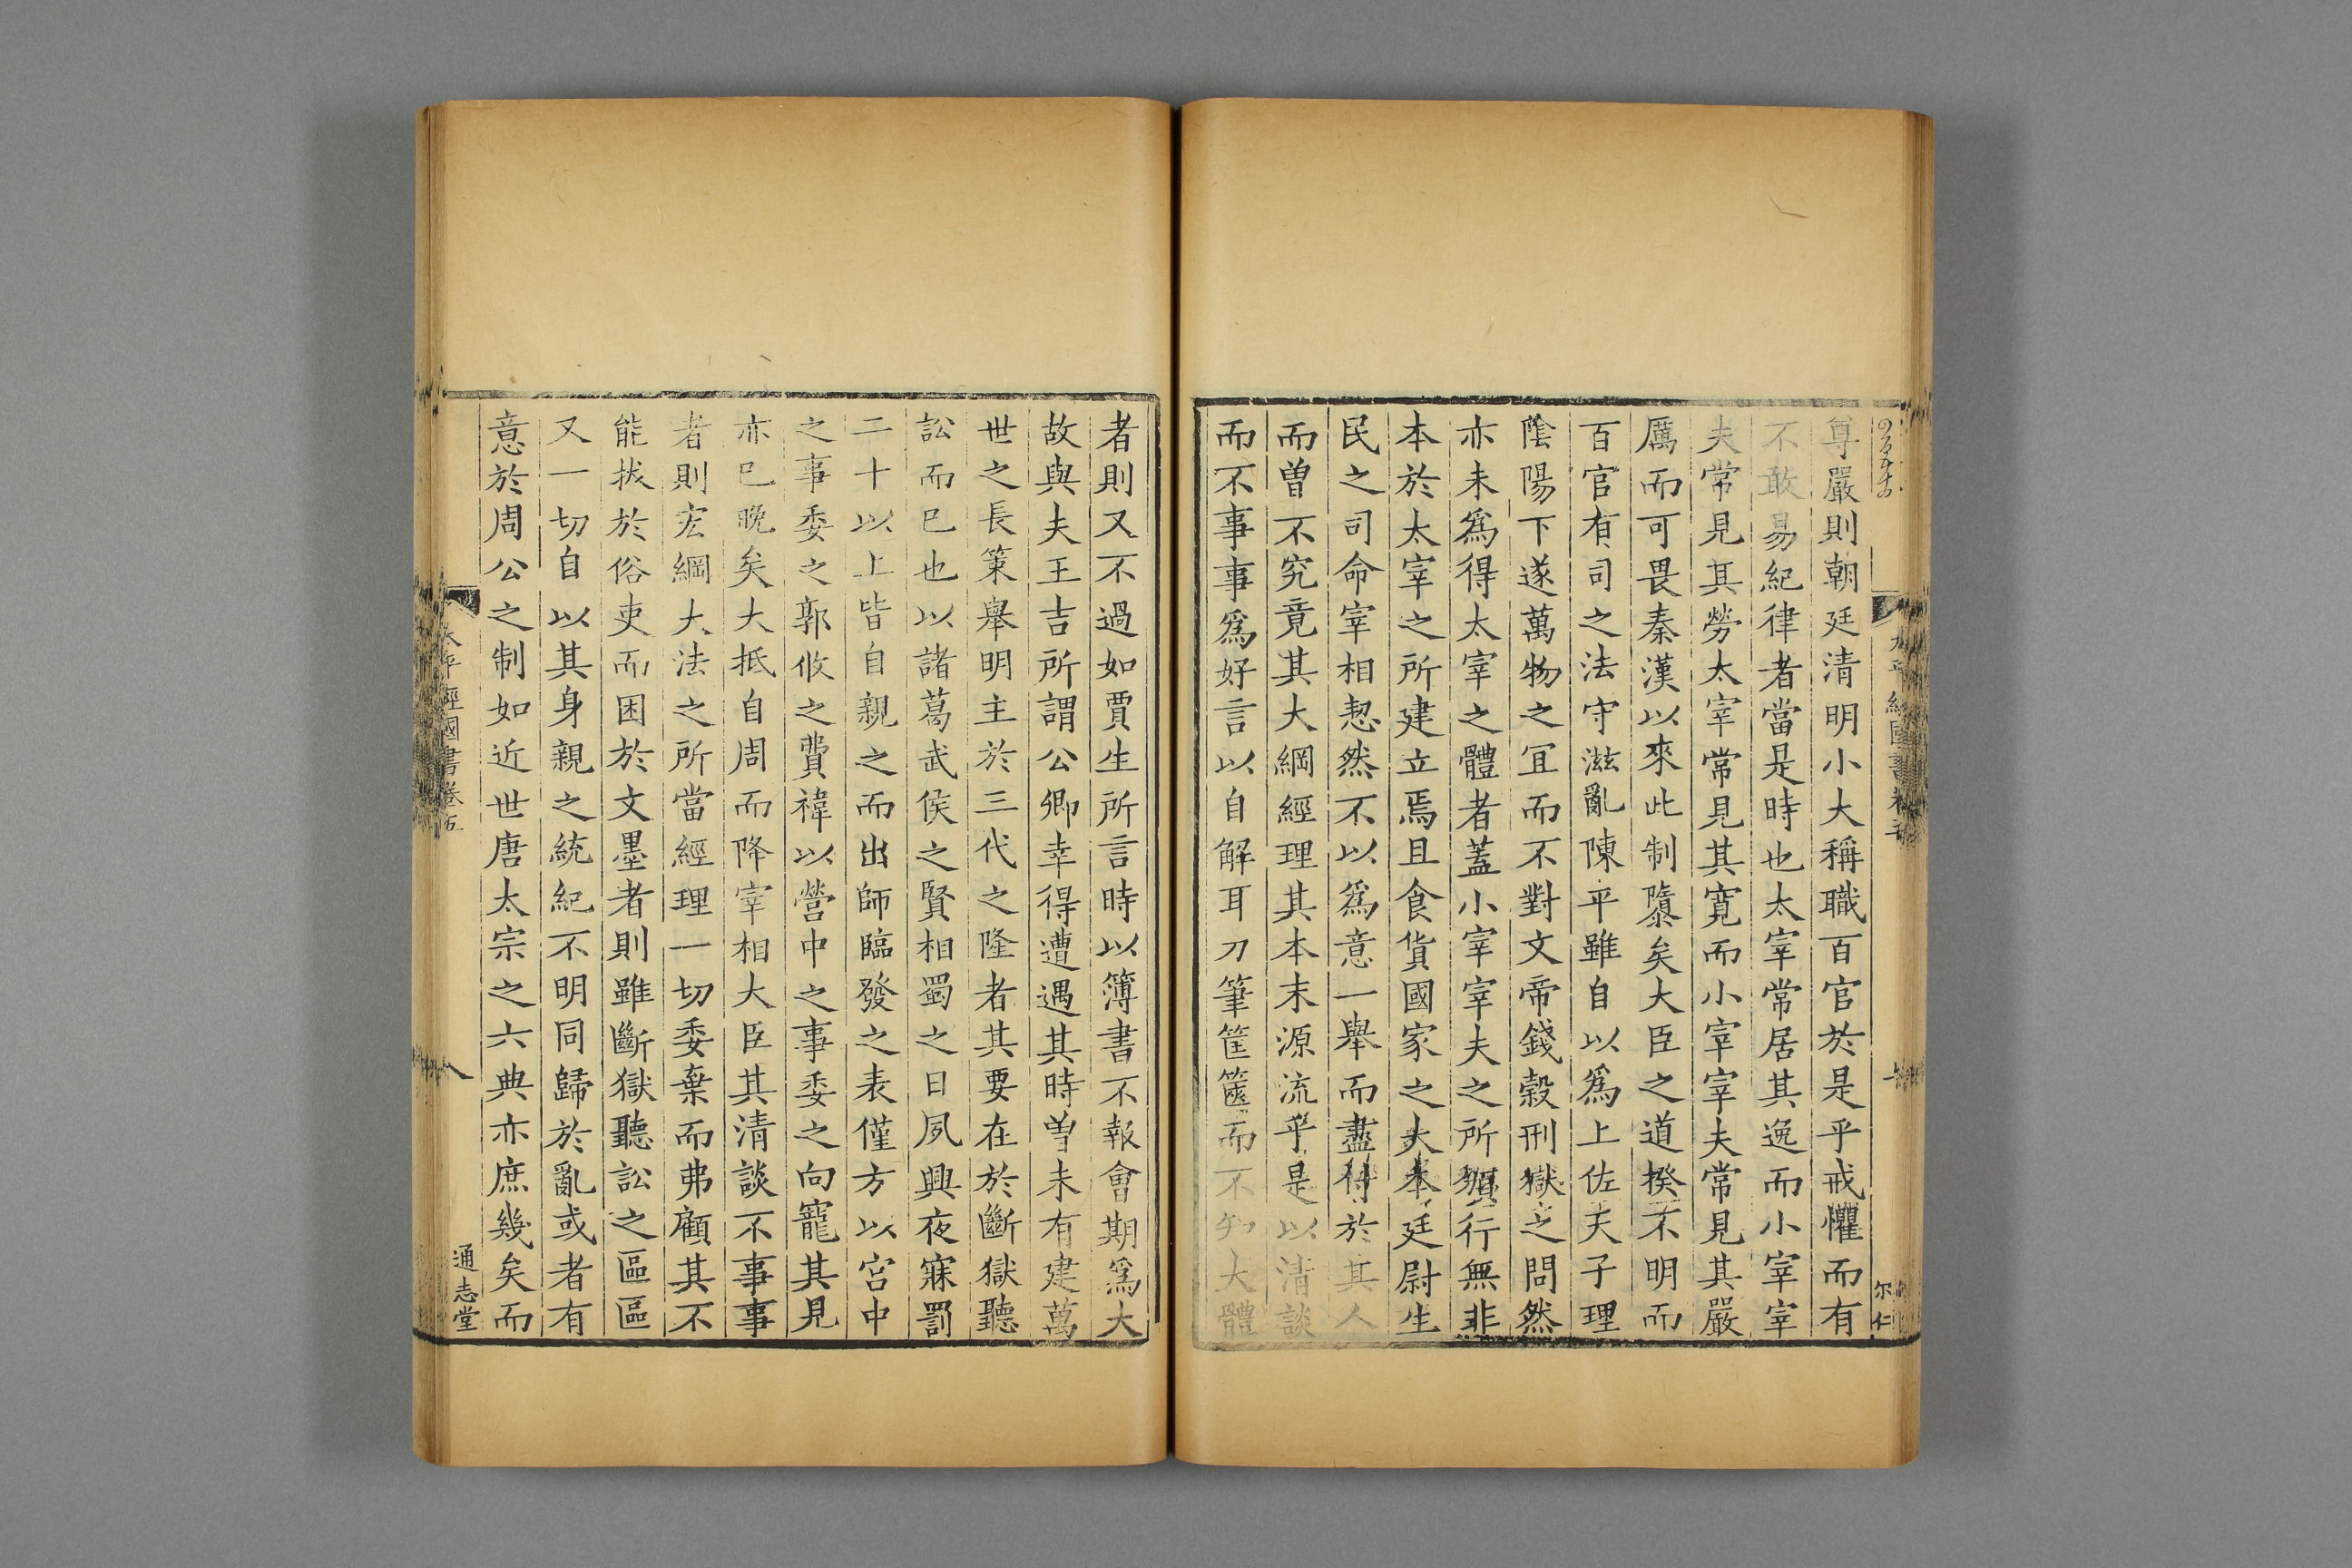 尊嚴則朝廷清明小大稱職百官於是乎戒懼而有
不敢易紀律者當是時也太宰常居其逸而小宰宰
夫常見其勞太宰常見其寛而小宰宰夫常見其嚴
厲而可畏秦漢以來此制隳矣大臣之道揆不明而
百官有司之法守滋亂陳平雖自以爲上佐天子理
陰陽下遂萬物之冝而不對文帝錢榖刑獄之問然
亦未爲得太宰之體者蓋小宰宰夫之所行無非
本於太宰之所建立焉且食貨國家之大本廷尉生
民之司命宰相恝然不以爲意一舉而盡付於其人
而曽不究竟其大綱經理其本末源流乎是以清談
而不事事爲好言以自解耳刀筆筐篋而不知大體
者則又不過如賈生所言時以簿書不報會期爲大
故與夫王吉所謂公卿幸得遭遇其時曽未有建萬
世之長策舉明主於三代之隆者其要在於斷獄聽
訟而已也以諸葛武侯之賢相蜀之日夙興夜寐罰
二十以上皆自親之而出師臨發之表僅方以宫中
之事委之郭攸之費禕以營中之事委之向寵其見
亦已晚矣大抵自周而降宰相大臣其清談不事事
者則宏綱大法之所當經理一切委棄而弗顧其不
能拔於俗吏而困於文墨者則雖斷獄聽訟之區區
又一切自以其身親之統紀不明同歸於亂或者有
意於周公之制如近世唐太宗之六典亦庶幾矣而
太平經國書卷五
八
通志堂